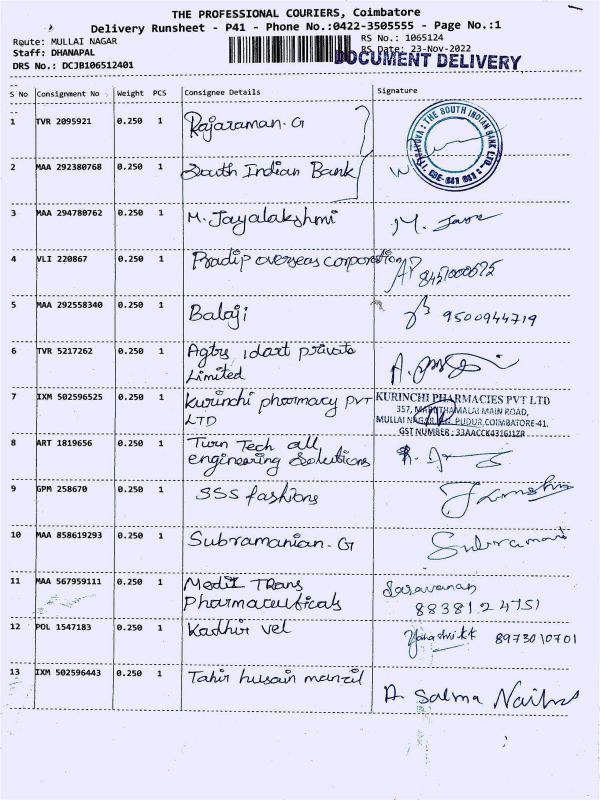 THE PROFESSIONAL COURIERS, Coimbatore
Delivery Runsheet - P41 - Phone No.:0422-3505555 - Page No.:1
Route: MULLAI NAGAR
RS No.: 1065124
Staff: DHANAPAL
RS Date: 23-Nov-2022
DOCUMENT DELIVERY
DRS No.: DCJB106512401
S No Consignment No Weight PCS Consignee Details Signature
1 TVR 2095921 0.250 1 Rajaraman. G
THE SOUTH INDIAN BANK LTD.
2 MAA 292380768 0.250 1 South Indian Bank
3 MAA 294780762 0.250 1 M. Jayalakshmi M.
4 VLI 220867 0.250 1 Pradip overseas corporation
5 MAA 292558340 0.250 1 Balaji 9500944719
6 TVR 5217262 0.250 1 idart private
Limited
7 IXM 502596525 0.250 1 Kurinchi pharmacy PVT
LTD
KURINCHI PHARMACIES PVT LTD
357, MARUTHAMALAI MAIN ROAD,
MULLAI NAGAR, P.N. PUDUR, COIMBATORE-41.
GST NUMBER : 33AACCK4316J1ZR
8 ART 1819656 0.250 1 Turn Tech all
engineering Solutions
9 GPM 258670 0.250 1 SSS fashions
10 MAA 858619293 0.250 1 Subramanian. G
11 MAA 567959111 0.250 1 Medii Trans
Pharmaceuticals
Saravanan
88381 24751
12 POL 1547183 0.250 1 Kadhir vel 8973010701
13 IXM 502596443 0.250 1 Tahir husain manzil A. Salma